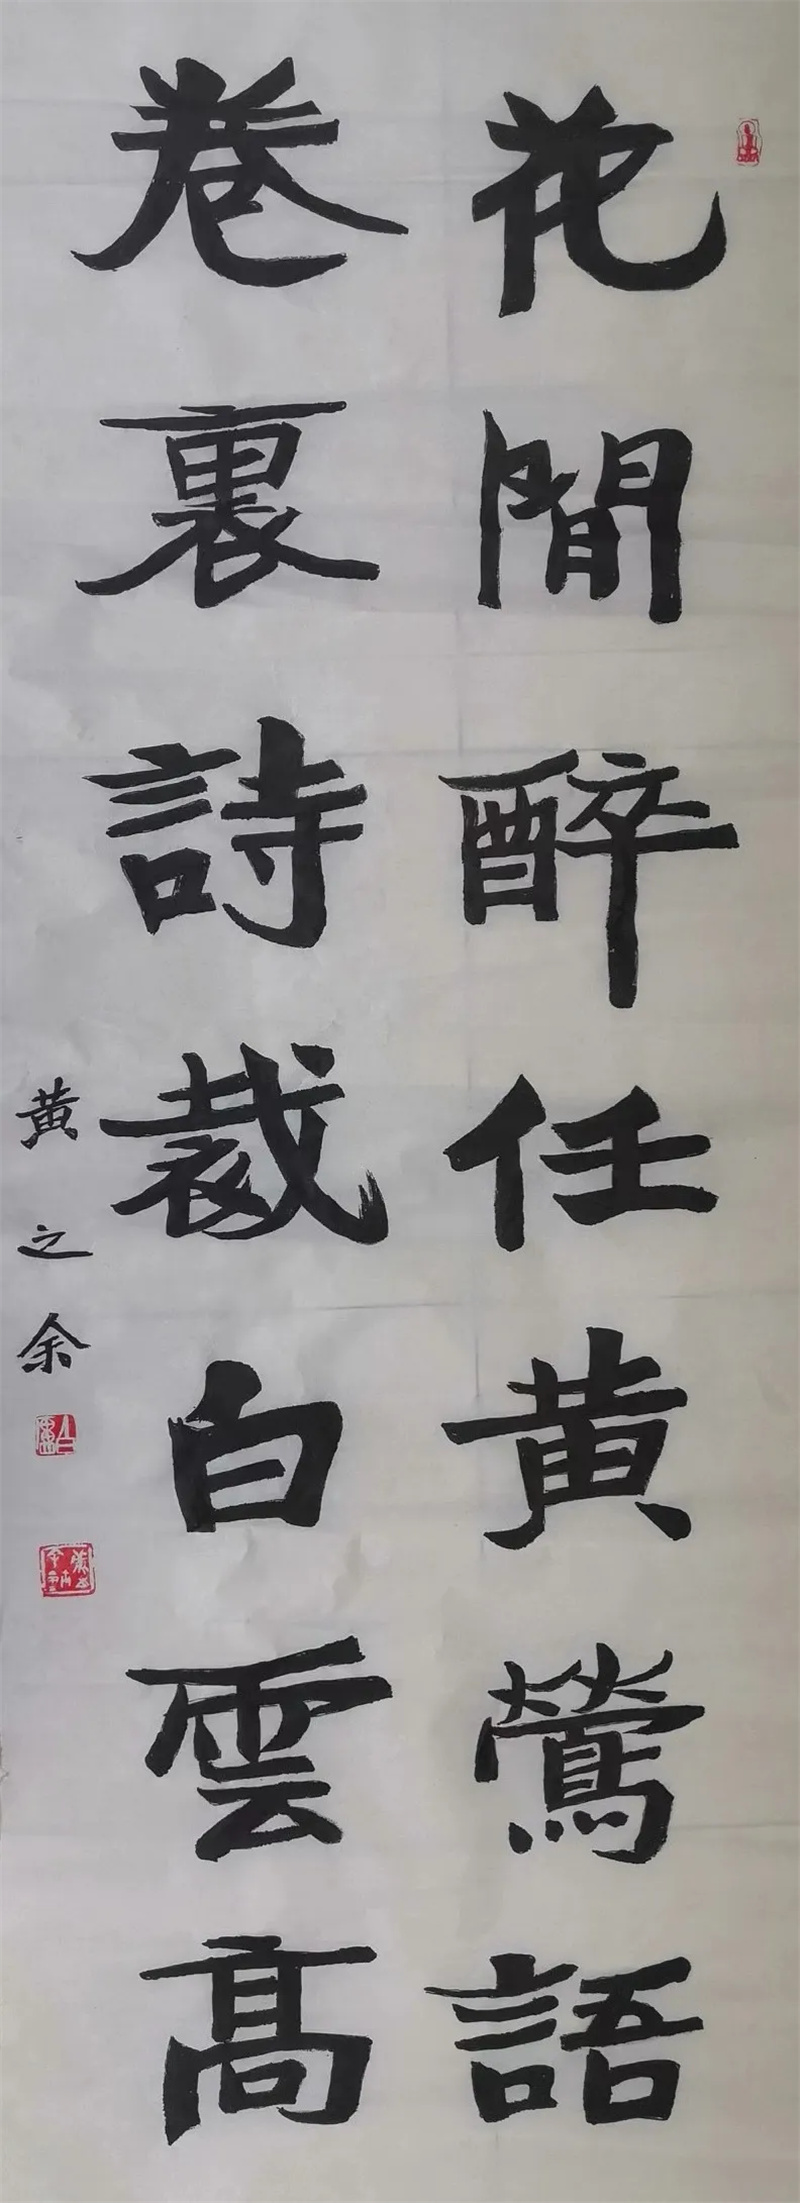 花間醉任黃鶯語
卷裏詩裁白雲高
黄之余